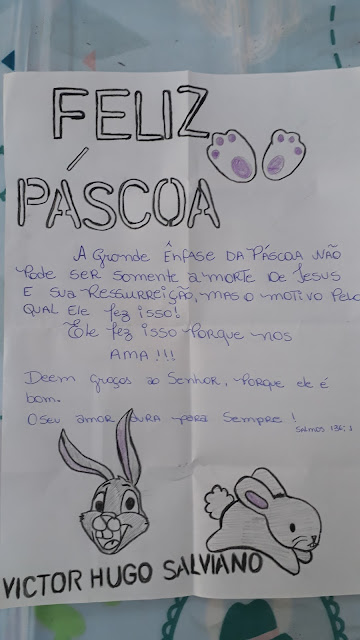 FELIZ
PÁSCOA
A Grande Ênfase DA PÁSCOA NÃO
Pode SER Somente a morte de Jesus
E sua Ressurreição, mas o motivo pelo
QUAL Ele fez isso!
Ele fez isso porque nos
AMA!!!
Deem graças ao Senhor, porque ele é
bom.
O seu amor dura para sempre!
SALMOS 136:1
VICTOR HUGO SALVIANO